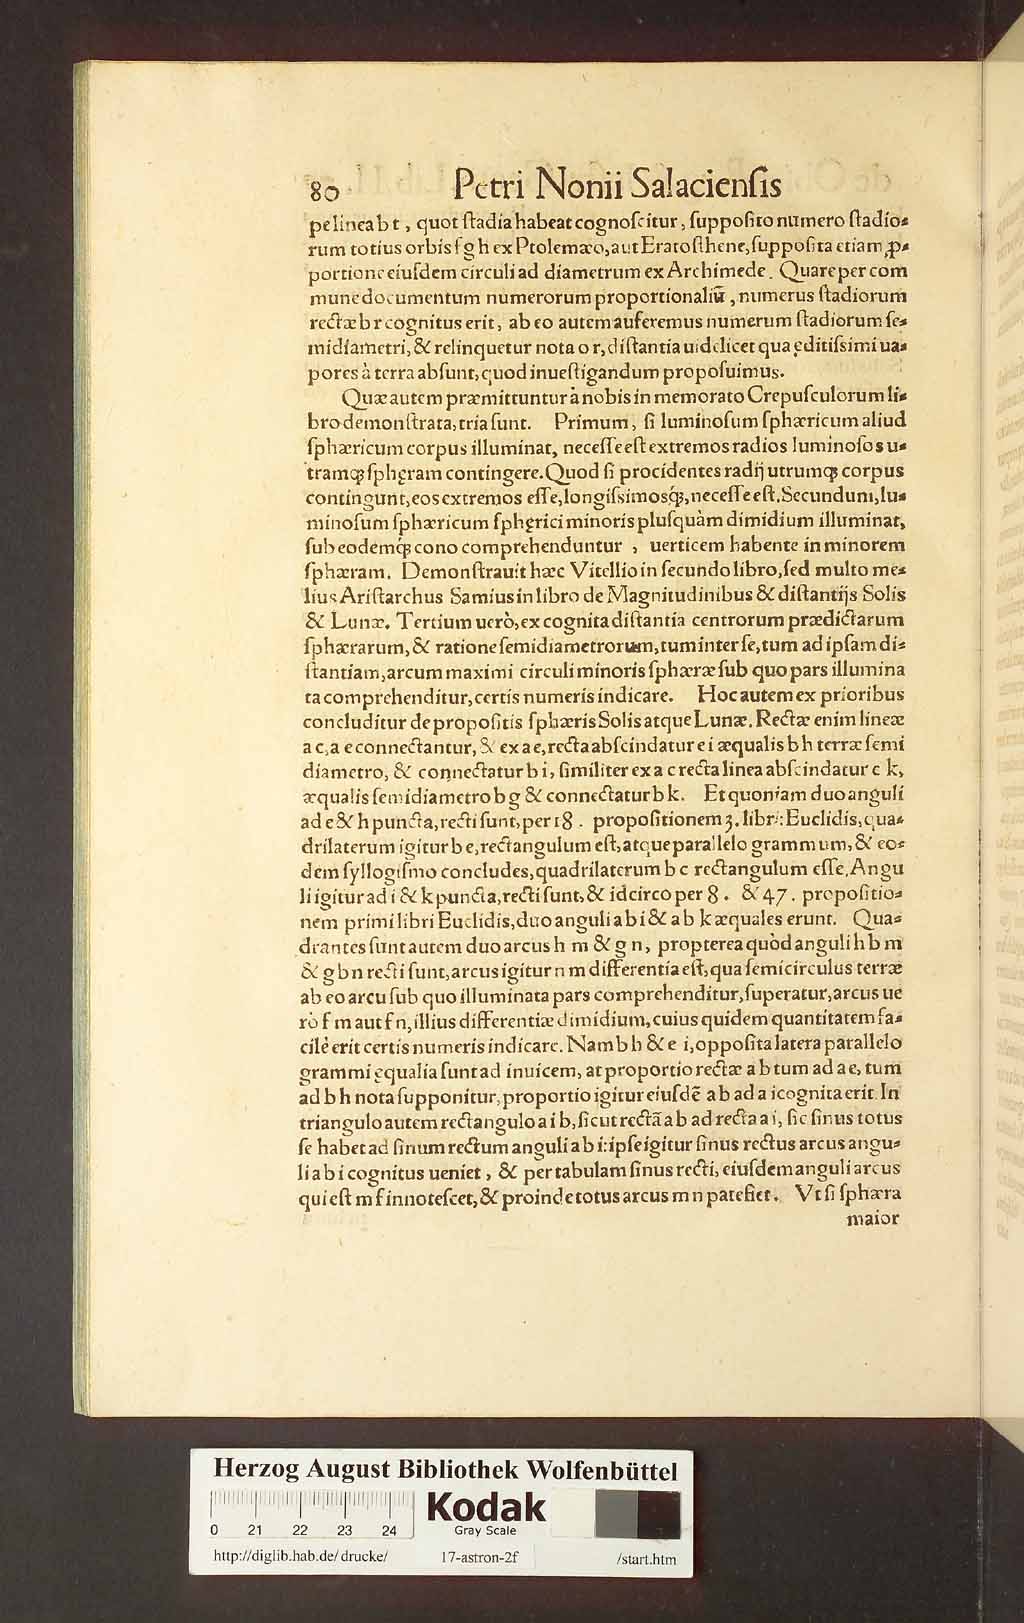 80 Petri Nonii Salaciensis
pe linea b t, quot ſtadia habeat cognoſcitur, ſuppoſito numero ſtadio⸗
rum totius orbis f g h ex Ptolemæo, aut Eratoſthene, ſuppoſita etiam ꝓ⸗
portione eiuſdem circuli ad diametrum ex Archimede. Quare per com
mune documentum numerorum proportionaliū, numerus ſtadiorum
rectæ b r cognitus erit, ab eo autem auferemus numerum ſtadiorum ſe⸗
midiametri, & relinquetur nota o r, diſtantia uidelicet qua ęditiſsimi ua⸗
pores à terra abſunt, quod inueſtigandum propoſuimus.
Quæ autem præmittuntur à nobis in memorato Crepuſculorum li⸗
bro demonſtrata, tria ſunt. Primum, ſi luminoſum ſphæricum aliud
ſphæricum corpus illuminat, neceſſe eſt extremos radios luminoſos u⸗
tramq́ꝫ ſphęram contingere. Quod ſi procidentes radij utrumq́ꝫ corpus
contingunt, eos extremos eſſe, longiſsimosq́ꝫ, neceſſe eſt. Secundum, lu⸗
minoſum ſphæricum ſphęrici minoris pluſquàm dimidium illuminat,
ſub eodemq́ꝫ cono comprehenduntur, uerticem habente in minorem
ſphæram. Demonſtrauit hæc Vitellio in ſecundo libro, ſed multo me⸗
lius Ariſtarchus Samius in libro de Magnitudinibus & diſtantijs Solis
& Lunæ. Tertium uerò, ex cognita diſtantia centrorum prædictarum
ſphærarum, & ratione ſemidiametrorum, tum inter ſe, tum ad ipſam di⸗
ſtantiam, arcum maximi circuli minoris ſphæræ ſub quo pars illumina
ta comprehenditur, certis numeris indicare. Hoc autem ex prioribus
concluditur de propoſitis ſphæris Solis atque Lunæ. Rectæ enim lineæ
a c, a e connectantur, & ex a e, recta abſcindatur e i æqualis b h terræ ſemi
diametro, & connectatur b i, ſimiliter ex a c recta linea abſcindatur c k,
æqualis ſemidiametro b g & connectatur b k. Et quoniam duo anguli
ad e & h puncta, recti ſunt, per 18. propoſitionem 3. libri Euclidis, qua⸗
drilaterum igitur b e, rectangulum eſt, atque parallelogrammum, & eo⸗
dem ſyllogiſmo concludes, quadrilaterum b c rectangulum eſſe. Angu
li igitur ad i & k puncta, recti ſunt, & idcirco per 8. & 47. propoſitio⸗
nem primi libri Euclidis, duo anguli a b i & a b k æquales erunt. Qua⸗
drantes ſunt autem duo arcus h m & g n, propterea quòd anguli h b m
& g b n recti ſunt, arcus igitur n m differentia eſt, qua ſemicirculus terræ
ab eo arcu ſub quo illuminata pars comprehenditur, ſuperatur, arcus ue
rò f m aut f n, illius differentiæ dimidium, cuius quidem quantitatem fa⸗
cilè erit certis numeris indicare. Nam b h & e i, oppoſita latera parallelo
grammi ęqualia ſunt ad inuicem, at proportio rectæ a b tum ad a e, tum
ad b h nota ſupponitur, proportio igitur eiuſdẽ a b ad a i cognita erit. In
triangulo autem rectangulo a i b, ſicut rectã a b ad recta a i, ſic ſinus totus
ſe habet ad ſinum rectum anguli a b i: ipſe igitur ſinus rectus arcus angu⸗
li a b i cognitus ueniet, & per tabulam ſinus recti, eiuſdem anguli arcus
qui eſt m f innoteſcet, & proinde totus arcus m n patefiet. Vt ſi ſphæra
maior
Herzog August Bibliothek Wolfenbüttel
0 21 22 23 24
Kodak
Gray Scale
http://diglib.hab.de/drucke/ 17-astron-2f /start.htm